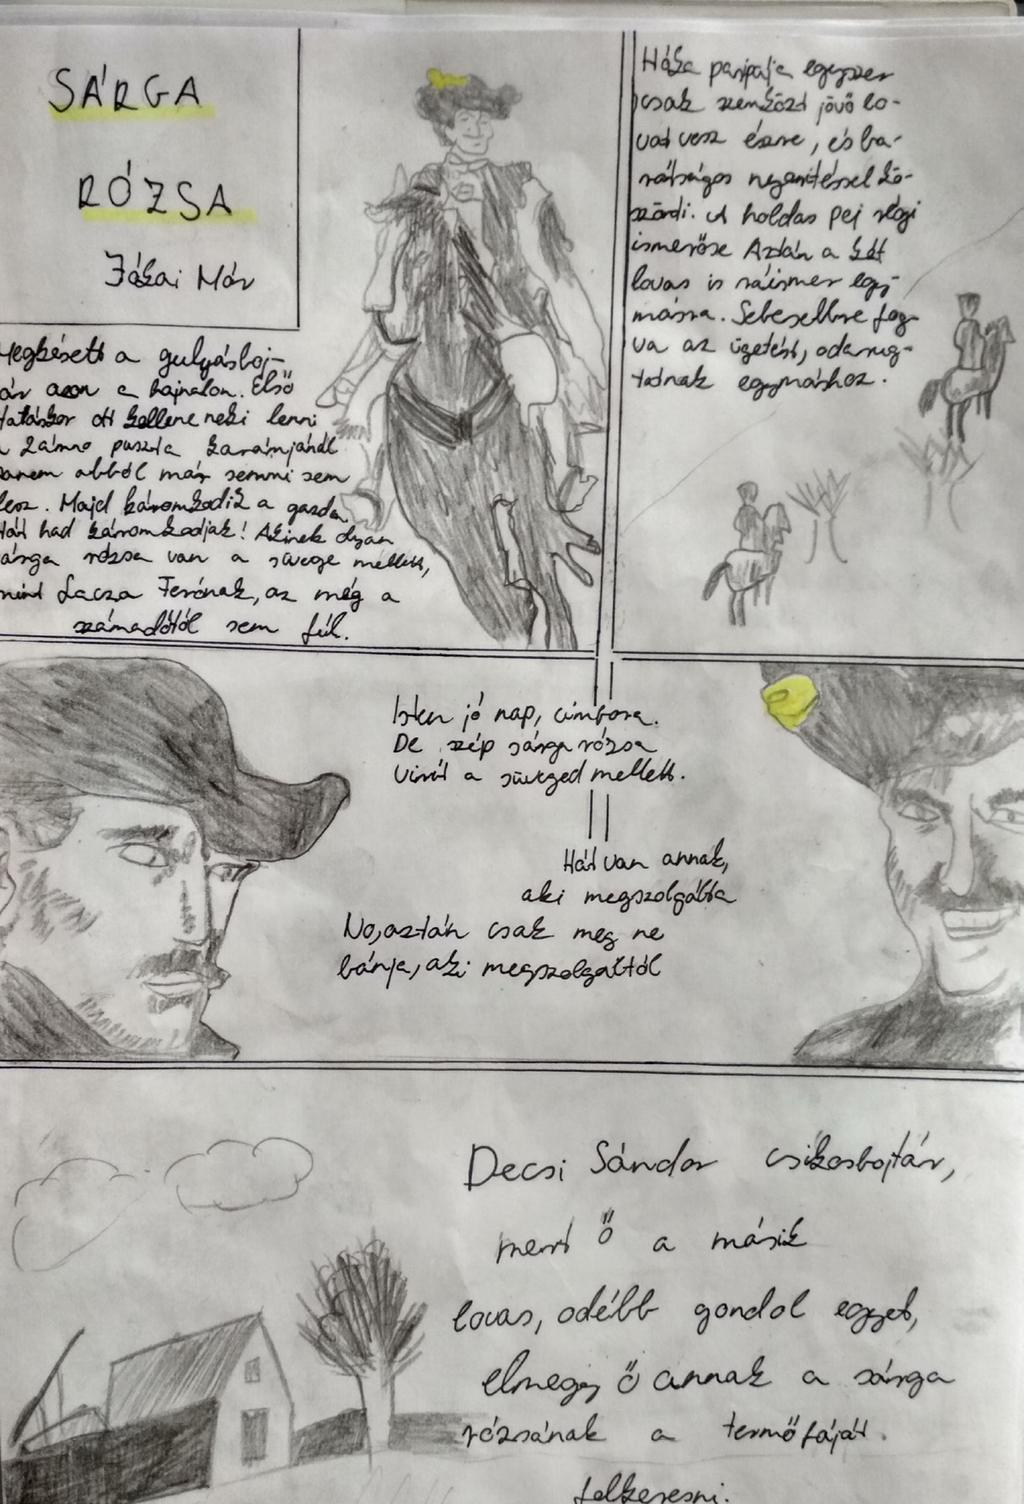 SÁRGA
RÓZSA
Jókai Mór
Megkésett a gulyásboj-
ár azon a hajnalon. Első
itatáskor ott kellene neki lenni
a Zámno puszta karámjánál
hanem abból már semmi sem
lesz. Majd káromkodik a gazda
Hát had káromkodjak! Akinek olyan
sárga rózsa van a süvege mellett,
mint Lacza Ferónak, az még a
számadótól sem fél.
Háka paripája egyszer
csak szemközt jövő lo-
vat vesz észre, és ba-
rátságos nyerítéssel kö-
szönti. A holdas pej régi
ismerőse Aztán a két
lovas is ráismer egy-
másra. Sebesebbre fog-
va az ügetést, odarug-
tatnak egymáshoz.
Isten jó nap, cimbora.
De szép sárga rózsa
virít a süveged mellett.
Hát van annak,
aki megszolgálta
No, aztán csak meg ne
bánja, aki megszolgáltál
Decsi Sándor csikósbojtár,
mert ő a másik
lovas, odébb gondol egyet,
elmegy ő annak a sárga
rózsának a termőfáját.
felkeresni.